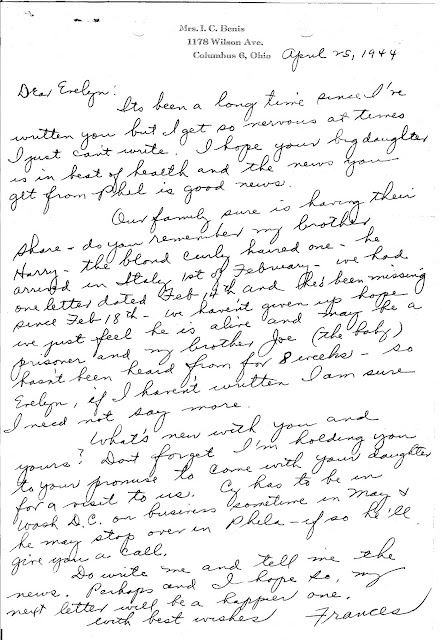 Mrs. I. C. Benis
1178 Wilson Ave.
Columbus 6, Ohio
April 25, 1944
Dear Evelyn:
Its been a long time since I've
written you but I get so nervous at times
I just can't write. I hope your big daughter
is in best of health and the news you
get from Phil is good news.
Our family sure is having their
share - do you remember my brother
Harry - the blond curly haired one - he
arrived in Italy 1st of February - we had
one letter dated Feb 14th and he's been missing
since Feb 18th - we haven't given up hope
we just feel he is alive and may be a
prisoner and my brother Joe (the baby)
hasn't been heard from for 8 weeks - so
Evelyn, if I haven't written I am sure
I need not say more.
What's new with you and
yours? Dont forget I'm holding you
to your promise to come with your daughter
for a visit to us. Cy has to be in
Wash D.C. on business sometime in May &
he may stop over in Phila - if so he'll
give you a call.
Do write me and tell me the
news. Perhaps and I hope so, my
next letter will be a happier one.
With best wishes Frances